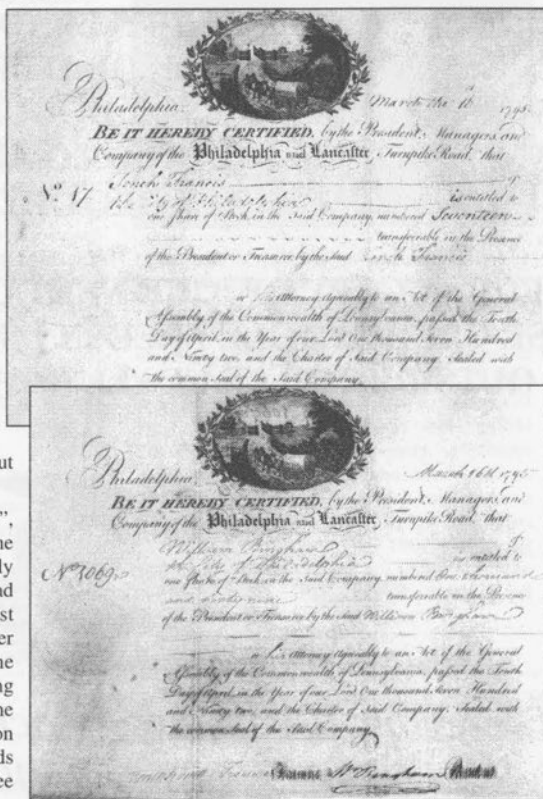 Philadelphia March the 16 1795
BE IT HEREBY CERTIFIED, by the President, Managers, and
Company of the Philadelphia and Lancaster Turnpike Road, that
No. 17
Francis of
the City of Philadelphia is entitled to
one Share of Stock in the Said Company, numbered Seventeen
transferable in the Presence
of the President or Treasurer by the Said Francis
or his Attorney Agreeably to an Act of the General
Assembly of the Commonwealth of Pennsylvania, passed the Tenth
Day of April, in the Year of our Lord One thousand Seven Hundred
and Ninety two, and the Charter of Said Company, Sealed with
the common Seal of the Said Company.
Philadelphia March 16th 1795
BE IT HEREBY CERTIFIED, by the President, Managers, and
Company of the Philadelphia and Lancaster Turnpike Road, that
William Bingham of
the City of Philadelphia is entitled to
No. 1069
one Share of Stock in the Said Company, numbered One thousand
and sixty nine transferable in the Presence
of the President or Treasurer by the Said William Bingham
or his Attorney Agreeably to an Act of the General
Assembly of the Commonwealth of Pennsylvania, passed the Tenth
Day of April, in the Year of our Lord One thousand Seven Hundred
and Ninety two, and the Charter of Said Company, Sealed with
the common Seal of the Said Company.
Francis Treasurer Wm Bingham President
ut
",
ne
ly
ad
st
er
ne
ng
ne
on
ds
ee